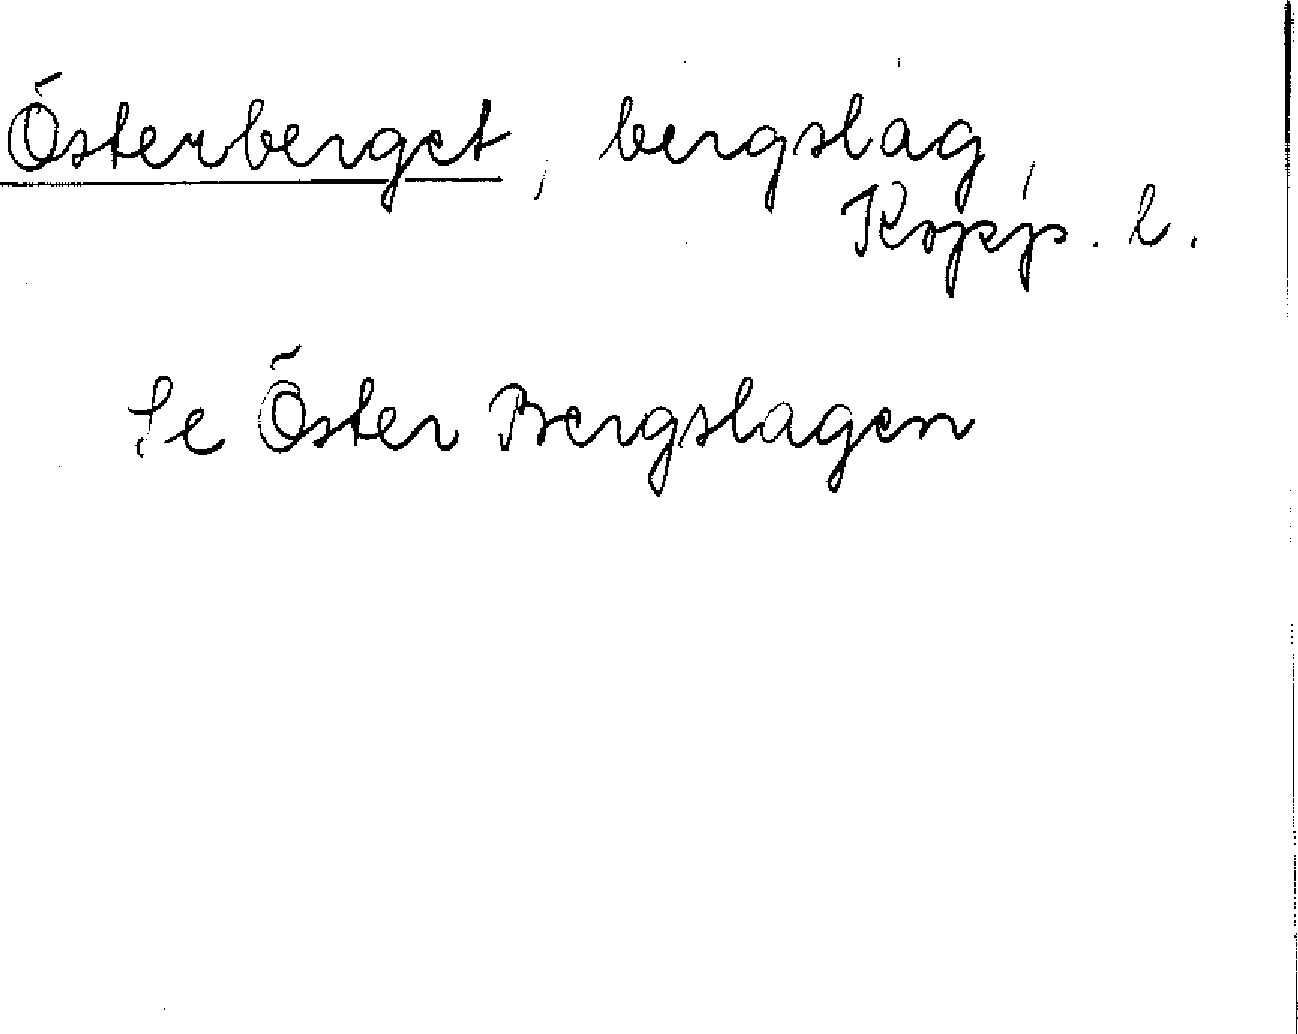 Österberget, bergslag,
Kopp. l.
Se Öster Bergslagen